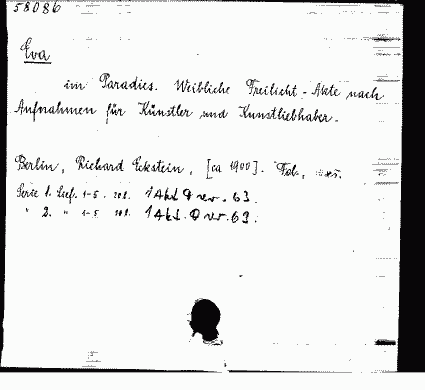 58086
Eva
im Paradies. Weibliche Freilicht-Akte nach
Aufnahmen für Künstler und Kunstliebhaber.
Berlin, Richard Eckstein, [ca 1900]. Fol.
Serie 1. Lief. 1-5. 1 Akt. rev. 63.
" 2. " 1-5 1 Akt. rev. 63.